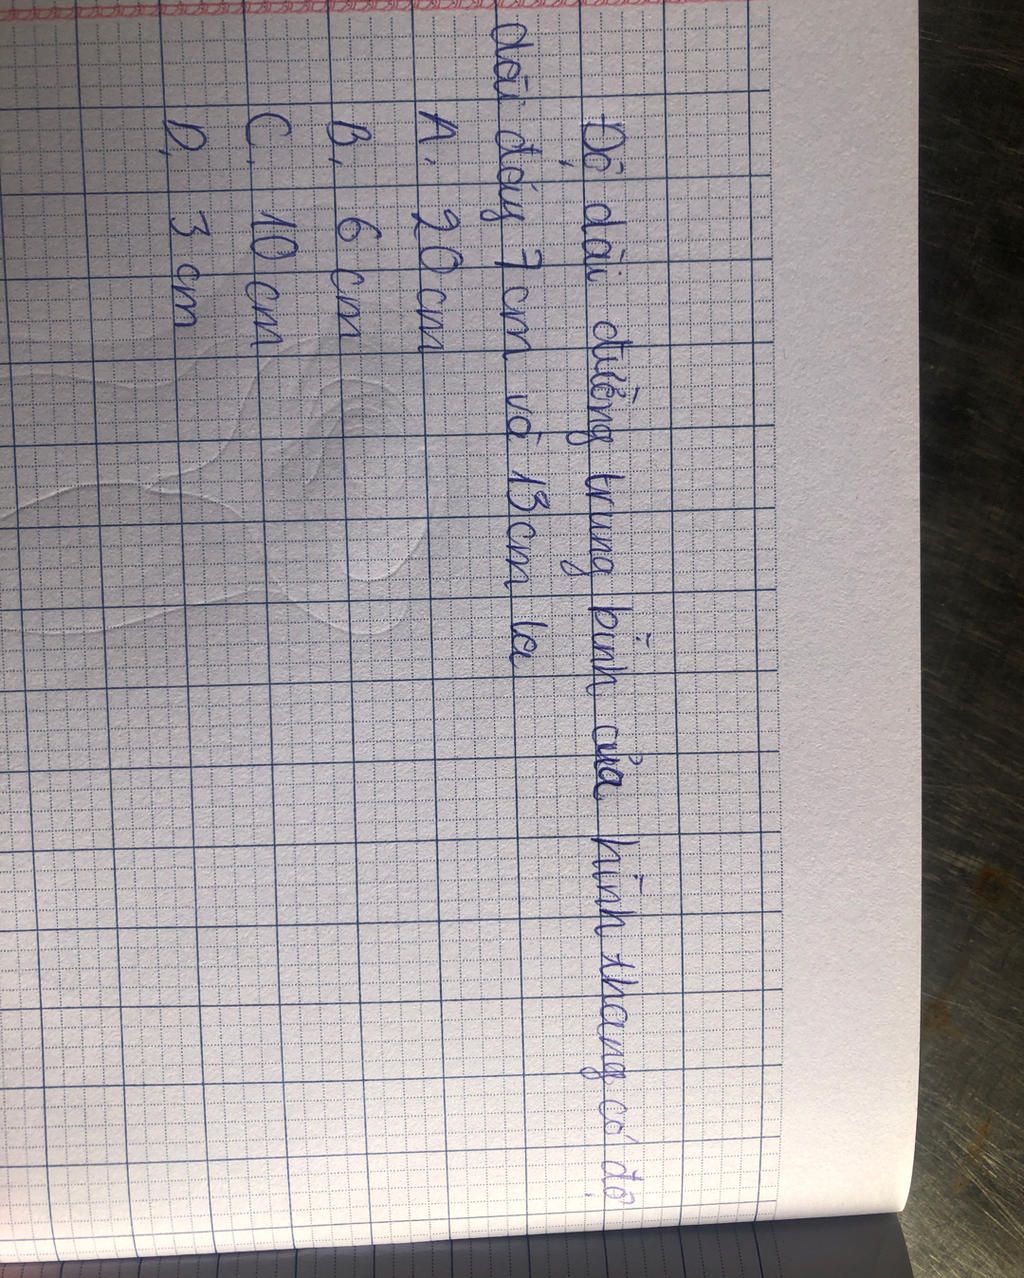 Độ dài đường trung bình của hình thang có độ
dài đáy 7cm và 13cm la
A. 20cm
B, 6cm
C. 10cm
D, 3cm